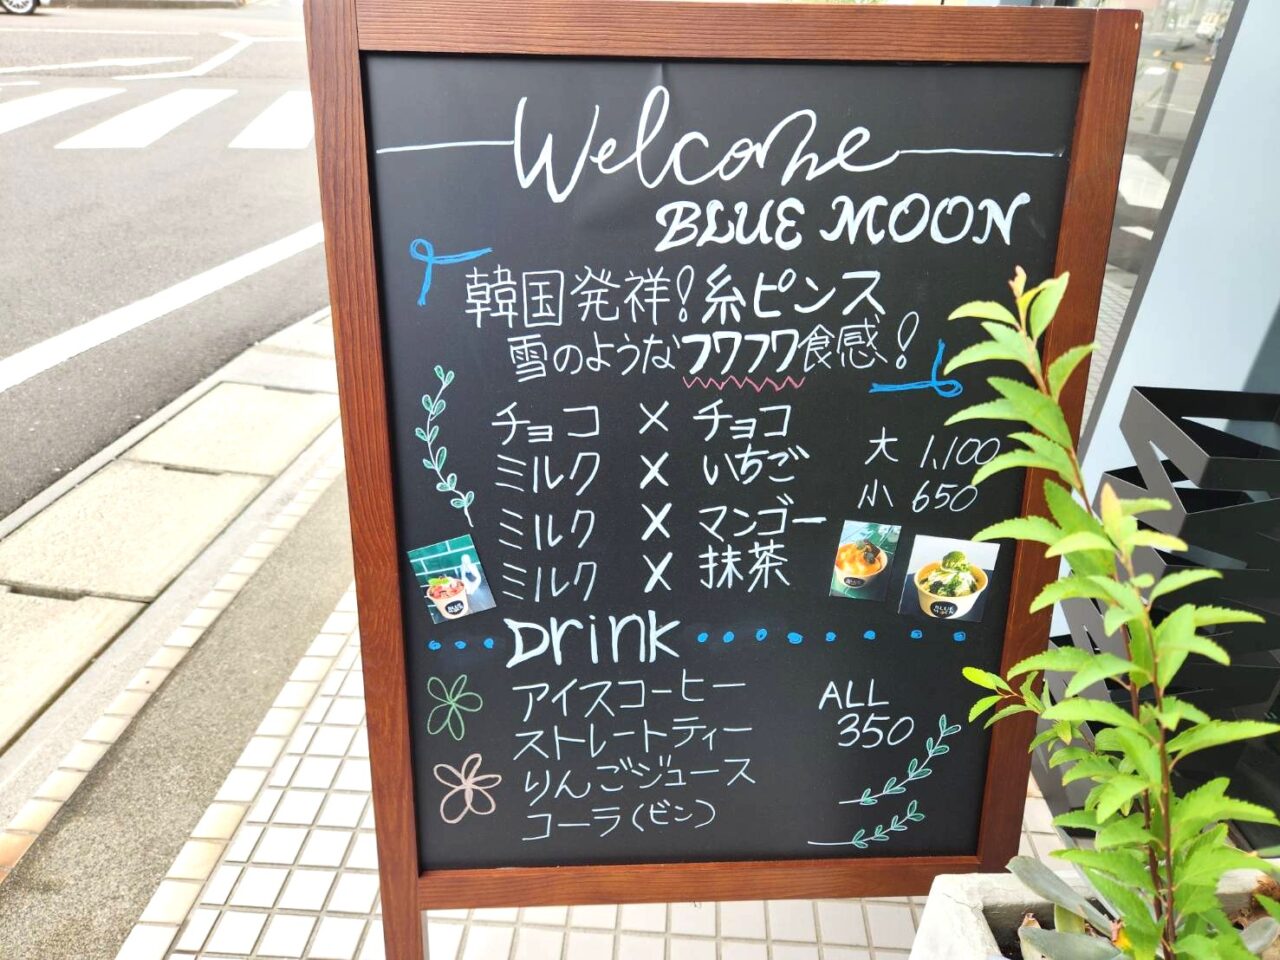 Welcome
BLUE MOON
韓国発祥！糸ピンス
雪のようなフワフワ食感！
チョコ × チョコ
ミルク × いちご
ミルク × マンゴー
ミルク × 抹茶
大 1,100
小 650
Drink
アイスコーヒー
ストレートティー
りんごジュース
コーラ（ビン）
ALL
350